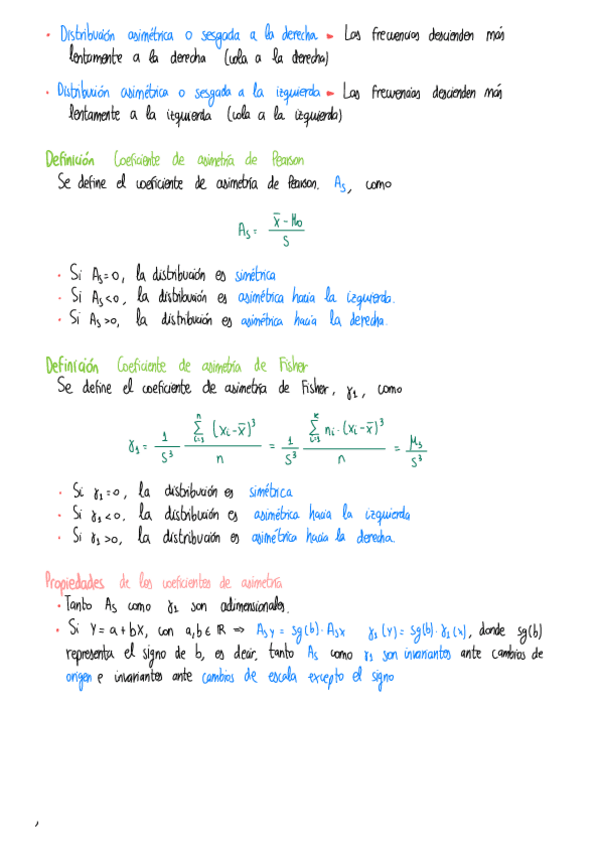 · Distribución asimétrica o sesgada a la derecha - Las frecuencias descienden más
lentamente a la derecha (cola a la derecha)
· Distribución asimétrica o sesgada a la izquierda - Las frecuencias descienden más
lentamente a la izquierda (cola a la izquierda)
Definición Coeficiente de asimetría de Pearson
Se define el coeficiente de asimetría de Pearson, As, como
As = (x̄ - Mo) / S
· Si As=0, la distribución es simétrica
· Si As<0, la distribución es asimétrica hacia la izquierda.
· Si As>0, la distribución es asimétrica hacia la derecha.
Definición Coeficiente de asimetría de Fisher
Se define el coeficiente de asimetría de Fisher, γ1, como
γ1 = 1/S³ · ∑ⁿᵢ₌₁ (xi - x̄)³ / n = 1/S³ · ∑ᵏᵢ₌₁ ni · (xi - x̄)³ / n = μ3/S³
· Si γ1=0, la distribución es simétrica
· Si γ1<0, la distribución es asimétrica hacia la izquierda
· Si γ1>0, la distribución es asimétrica hacia la derecha.
Propiedades de los coeficientes de asimetría
· Tanto As como γ1 son adimensionales.
· Si Y=a+bX, con a,b∈ℝ ⇒ Asy = sg(b)·Asx γ1(Y) = sg(b)·γ1(x), donde sg(b)
representa el signo de b, es decir, tanto As como γ1 son invariantes ante cambios de
origen e invariantes ante cambios de escala excepto el signo